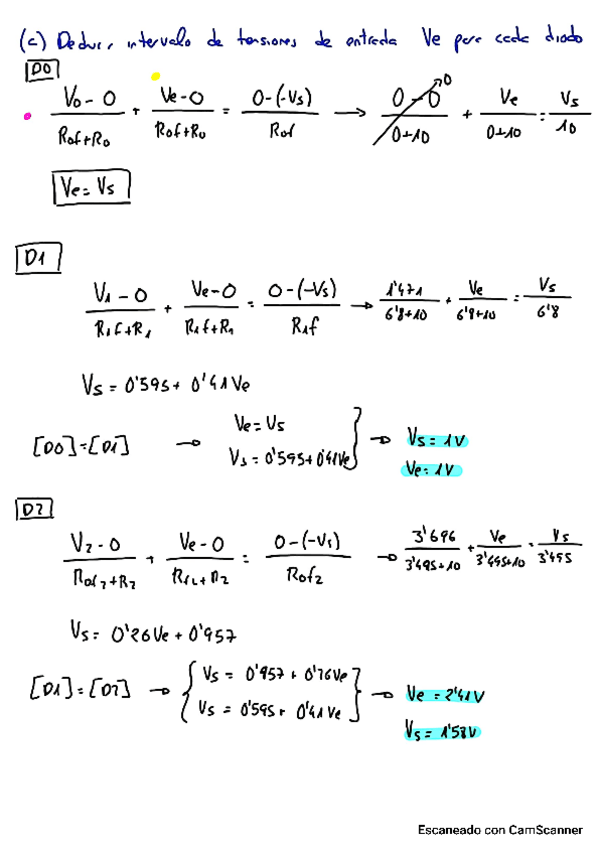 (c) Deducir intervalo de tensiones de entrada Ve para cada diodo
D0
V0 - 0 / R0f+R0 + Ve - 0 / R0f+R0 = 0-(-Vs) / R0f → 0 - 0 / 0+10 0 + Ve / 0+10 = Vs / 10
Ve = Vs
D1
V1 - 0 / R1f+R1 + Ve - 0 / R1f+R1 = 0-(-Vs) / R1f → 1'471 / 6'8+10 + Ve / 6'8+10 = Vs / 6'8
Vs = 0'595 + 0'41Ve
[D0]=[D1] → Ve = Vs
Vs = 0'595+0'41Ve } → Vs = 1V
Ve = 1V
D2
V2 - 0 / R0f2+R2 + Ve - 0 / Rf2+R2 = 0-(-Vs) / R0f2 → 3'696 / 3'495+10 + Ve / 3'495+10 = Vs / 3'495
Vs = 0'26Ve + 0'957
[D1]=[D2] → { Vs = 0'957 + 0'26Ve
Vs = 0'595 + 0'41Ve } → Ve = 2'41V
Vs = 1'58V
Escaneado con CamScanner